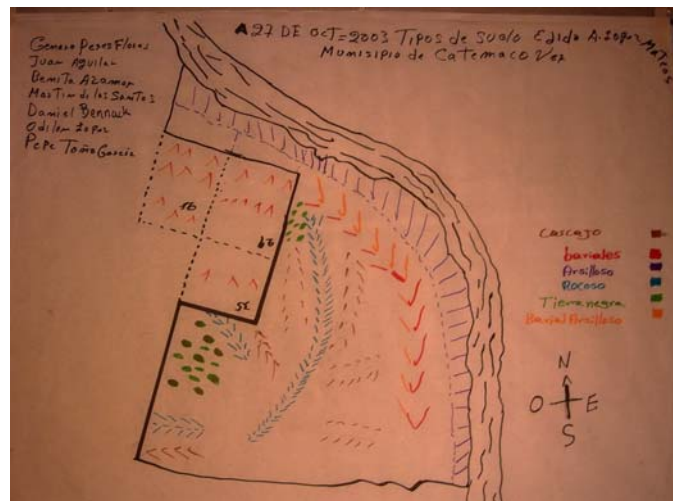 A 27 DE OCT=2003 Tipos de Suelo Edido A. Lopez Mateos
Municipio de Catemaco Ver
Genaro Peres Flores
Juan Aguilar
Benito Azamar
Martin de los Santos
Daniel Bennack
Odilon Lopez
Pepe Toño Garcia
16
29
35
Cascajo
bariales
Arsilloso
Rocoso
Tierra negra
Barial Arsilloso
N
O E
S